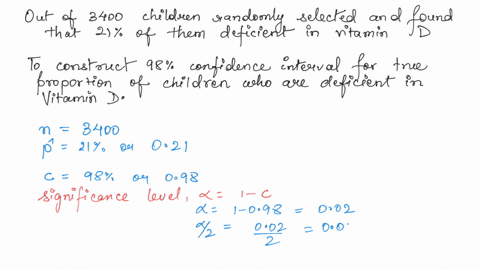 Out of 3400 children randomly selected and found
that 21% of them deficient in vitamin D
To construct 98% confidence interval for true
proportion of children who are deficient in
Vitamin D.
n = 3400
p̂ = 21% or 0.21
c = 98% or 0.98
significance level, α = 1-c
α = 1-0.98 = 0.02
α/2 = 0.02/2 = 0.0